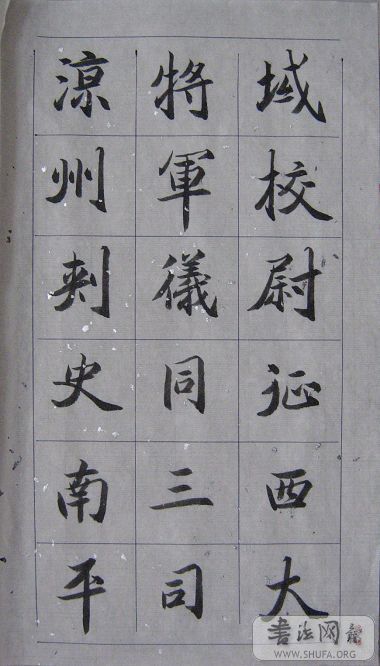 域校尉征西大
將軍儀同三司
涼州刺史南平
書法网
WWW.SHUFA.ORG